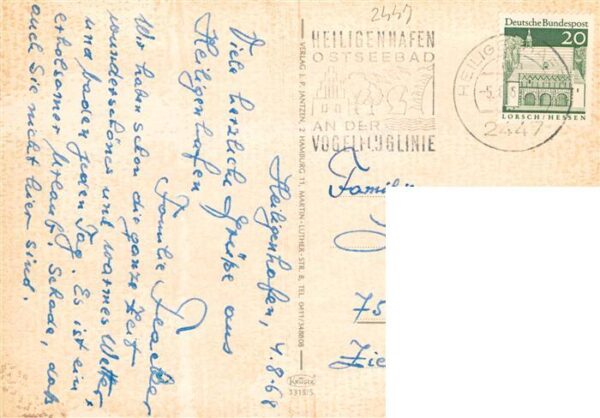 Heiligenhafen, 4.8.68
Viele herzliche Grüße aus
Heiligenhafen
Familie
Wir haben schon die ganze Zeit
wunderschönes und warmes Wetter,
und baden jeden Tag. Es ist ein
erholsamer Urlaub. Schade, daß
auch Sie nicht hier sind.
VERLAG J. P. JANTZEN, 2 HAMBURG 11, MARTIN-LUTHER-STR. 8, TEL. 0411/348808
KRÜGER
1318/5
2447
HEILIGENHAFEN
OSTSEEBAD
AN DER
VOGELFLUGLINIE
HEILIG
-5.8.
2447
Deutsche Bundespost
20
LORSCH/HESSEN
Familie
75
Zie